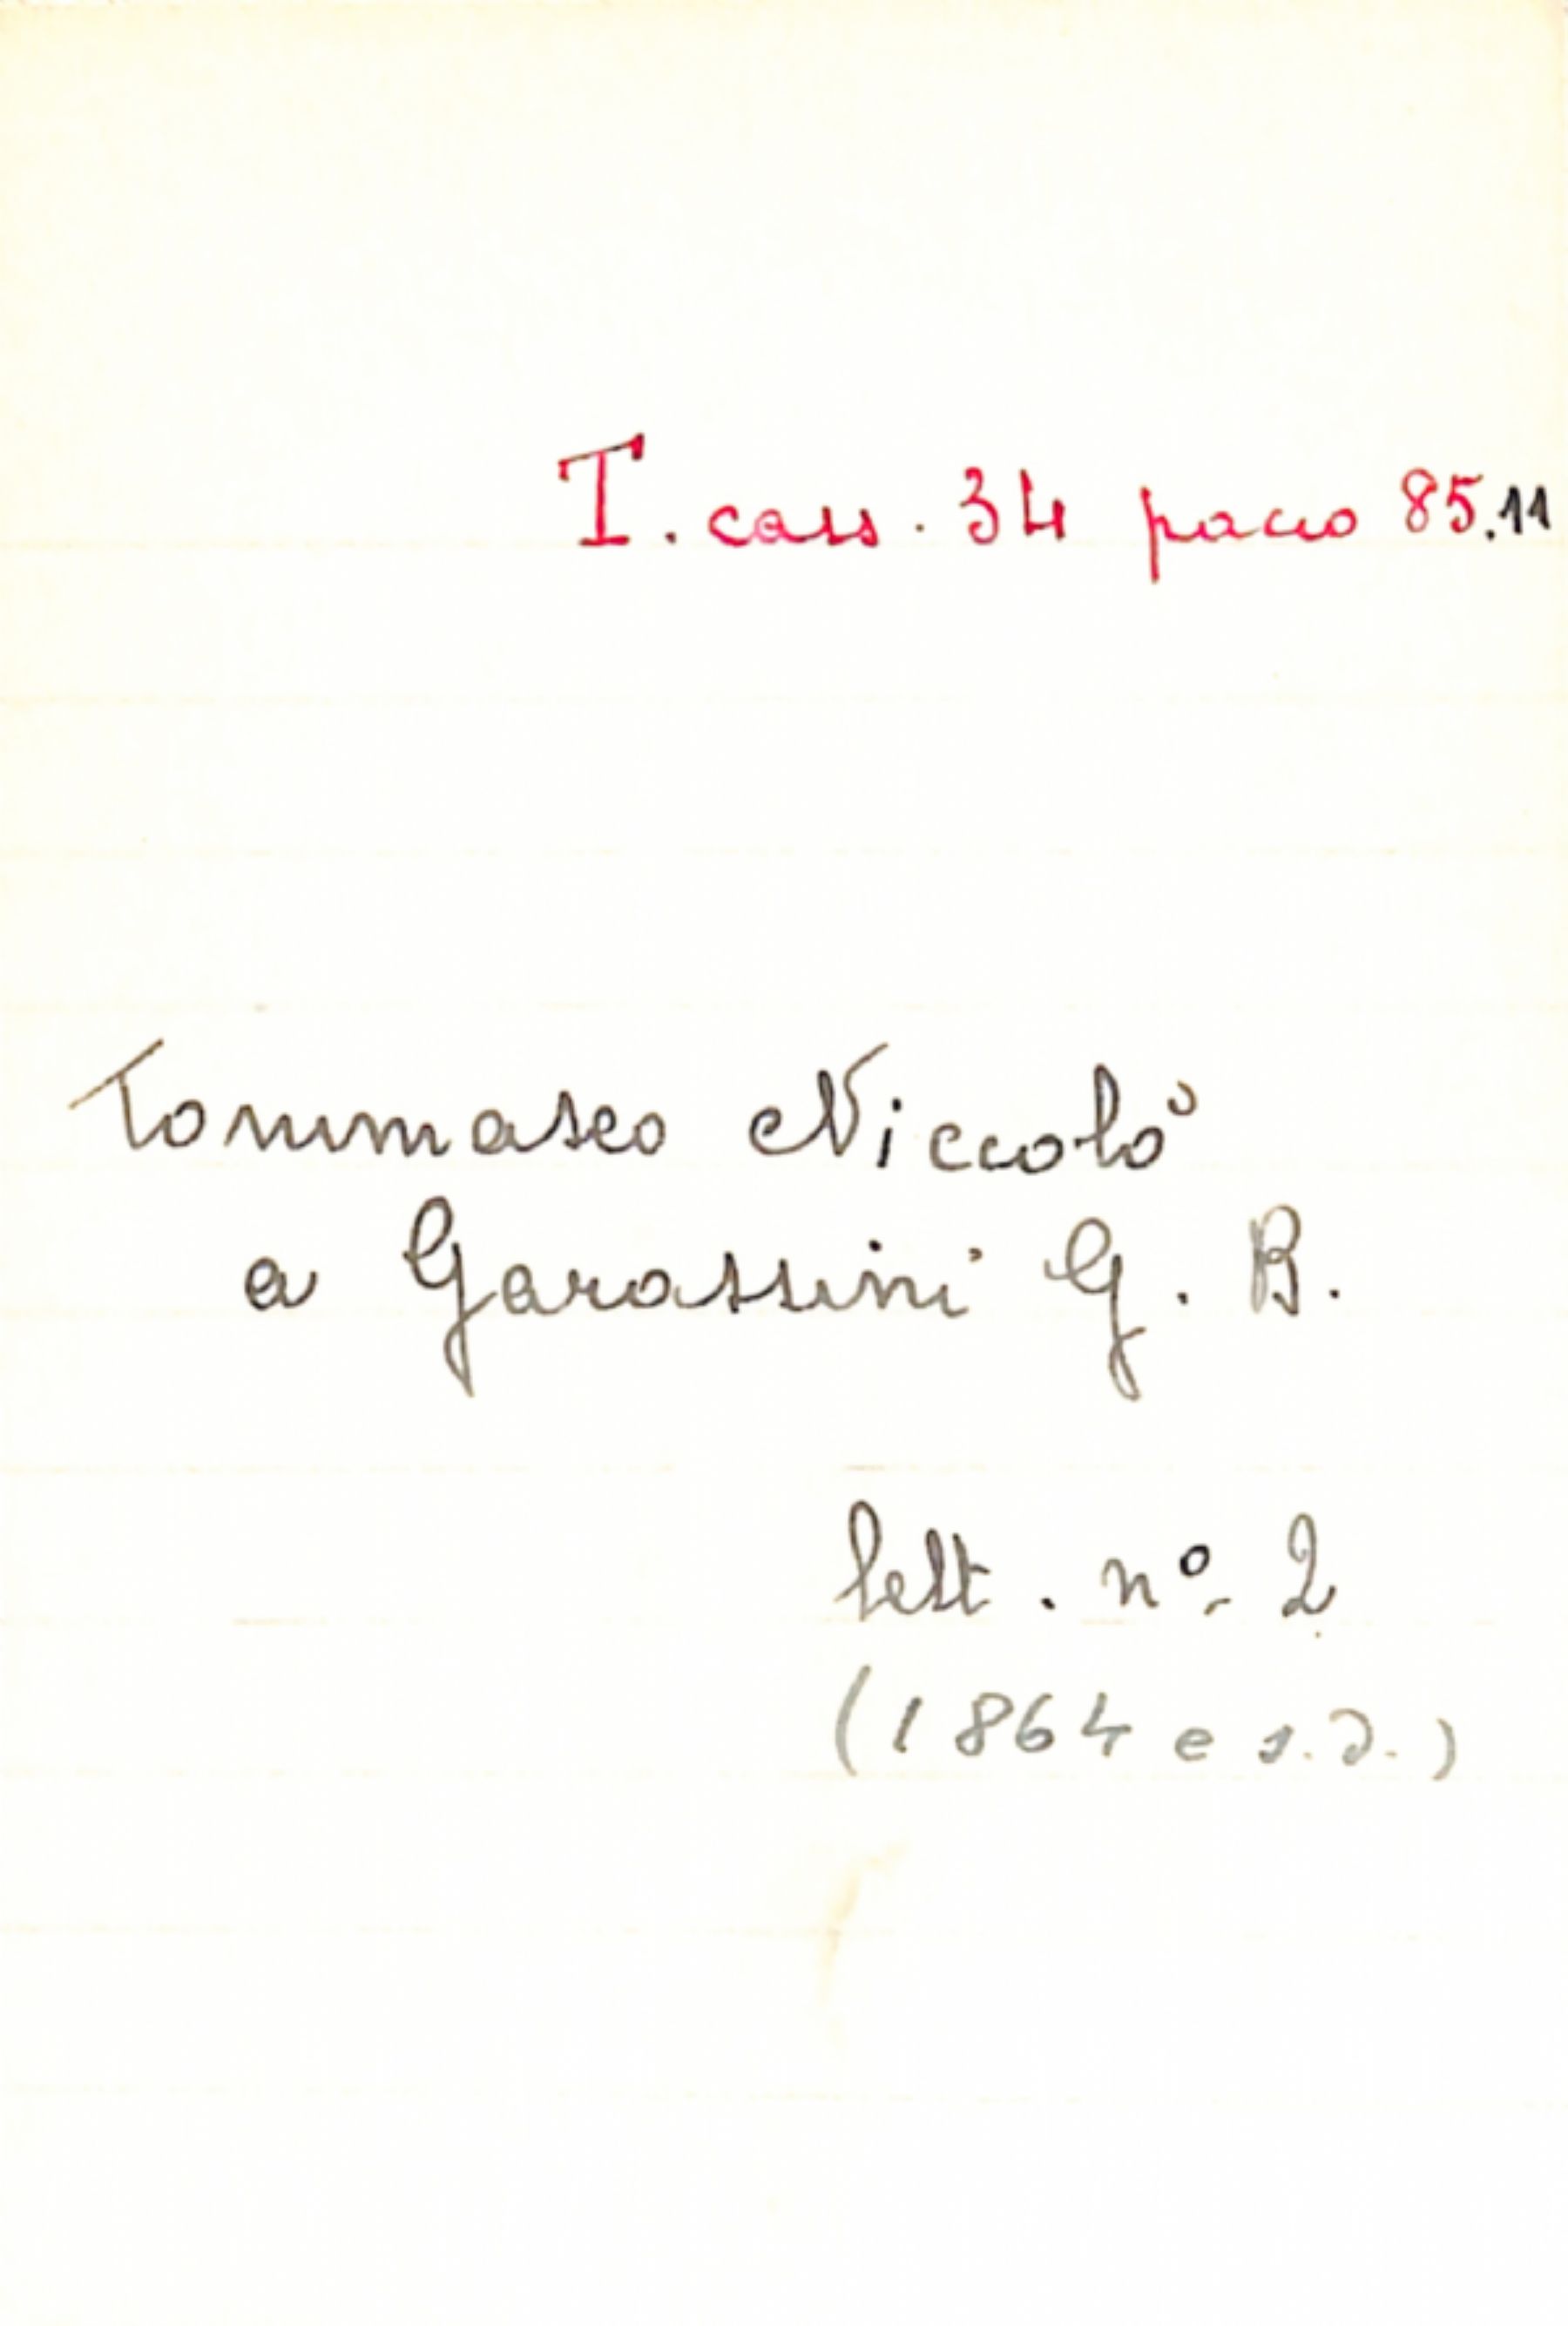 T. cass. 34 pacco 85.11
Tommaseo Niccolò
a Garassini G. B.
lett. nº 2
(1864 e s.d.)